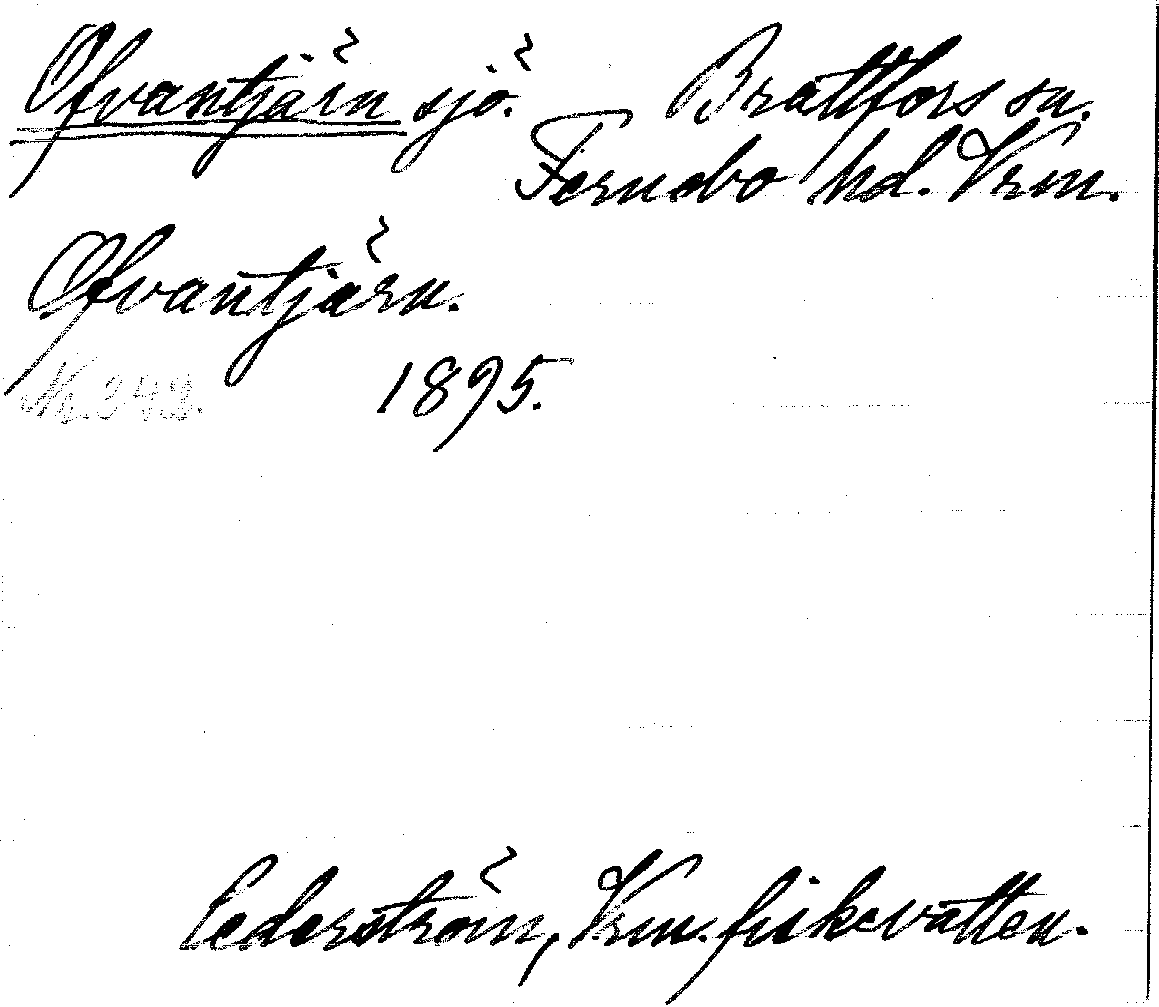 Ofvantjärn sjö. Brattfors sn.
Fernebo hd. Vrm.
Ofvantjärn.
Nr. 342. 1895.
Cederström, Vrm. fiskevatten.